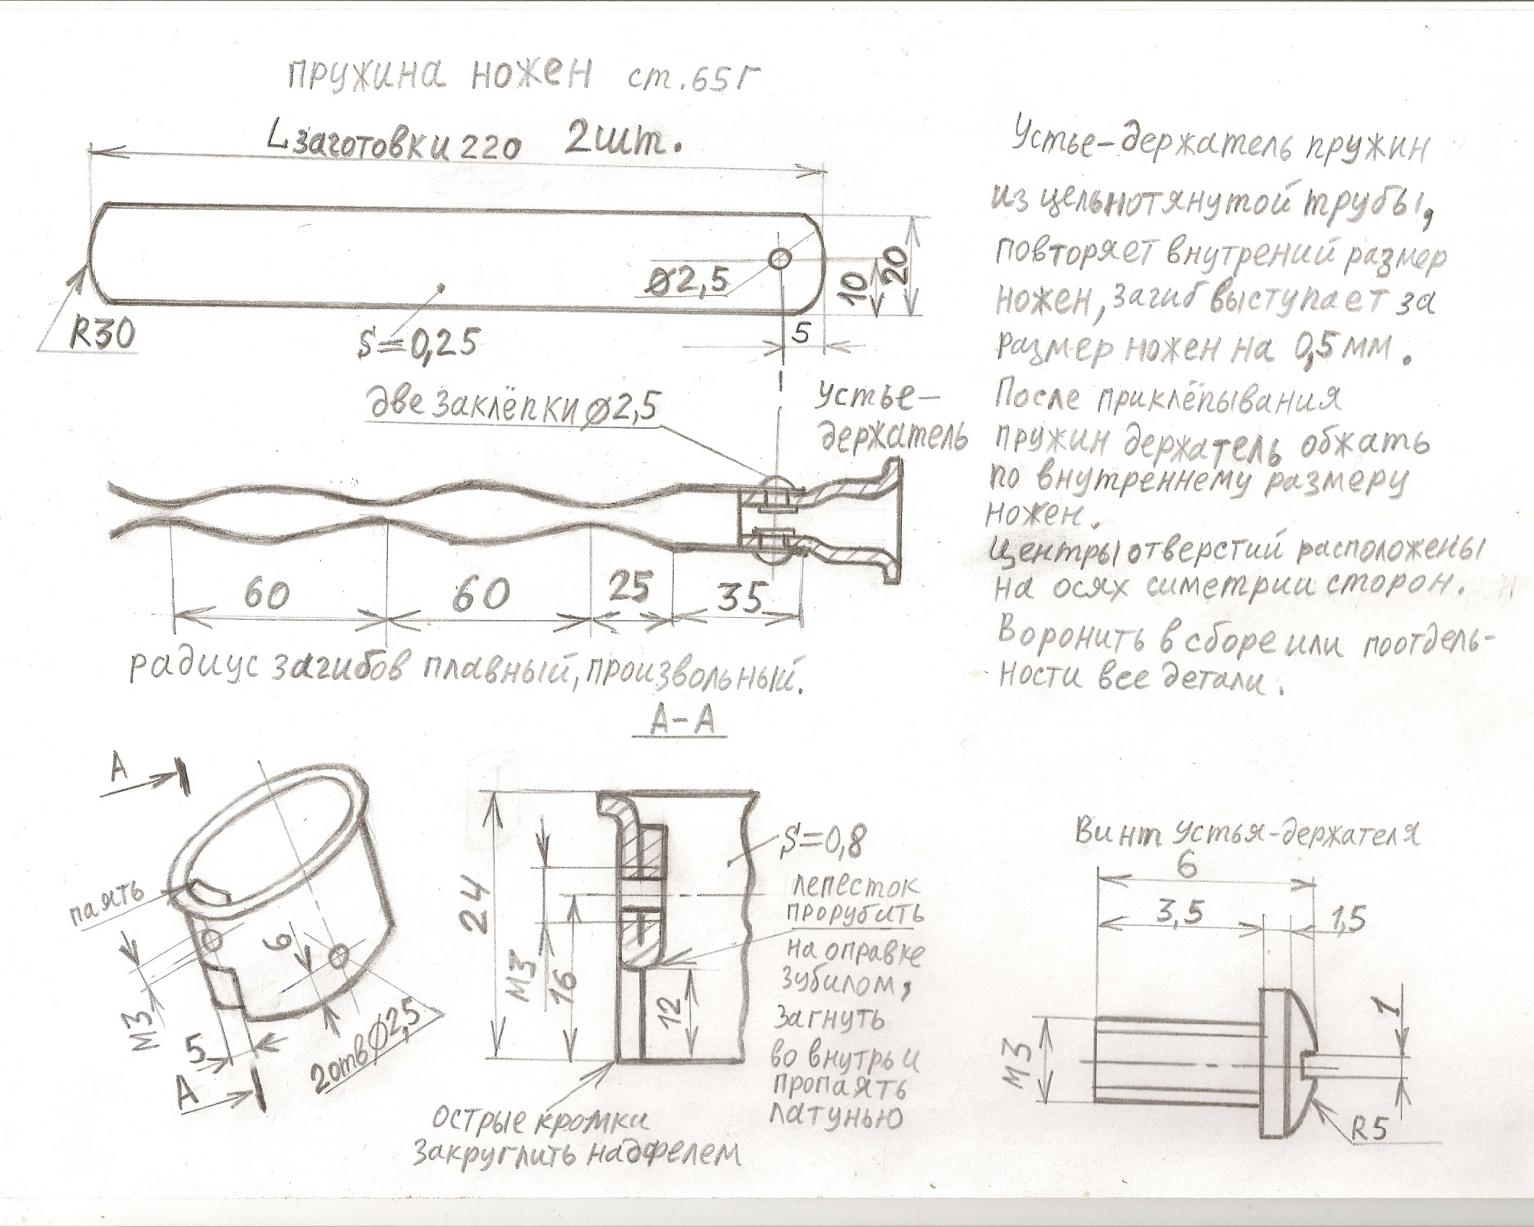 пружина ножен ст.65Г
Lзаготовки 220 2шт.
Ø2,5
10
20
R30
S=0,25
5
две заклёпки Ø2,5
Устье-
держатель
60
60
25
35
радиус загибов плавный, произвольный.
Устье-держатель пружин
из цельнотянутой трубы,
повторяет внутрений размер
ножен, загиб выступает за
размер ножен на 0,5мм.
После приклёпывания
пружин держатель обжать
по внутреннему размеру
ножен.
Центры отверстий расположены
на осях симетрии сторон.
Воронить в сборе или поотдель-
ности все детали.
А
паять
М3
6
5
2отв Ø2,5
А
А-А
24
М3
16
12
S=0,8
лепесток
прорубить
на оправке
зубилом,
загнуть
во внутрь и
пропаять
латунью
острые кромки
закруглить надфелем
Винт устья-держателя
6
3,5
1,5
М3
1
R5